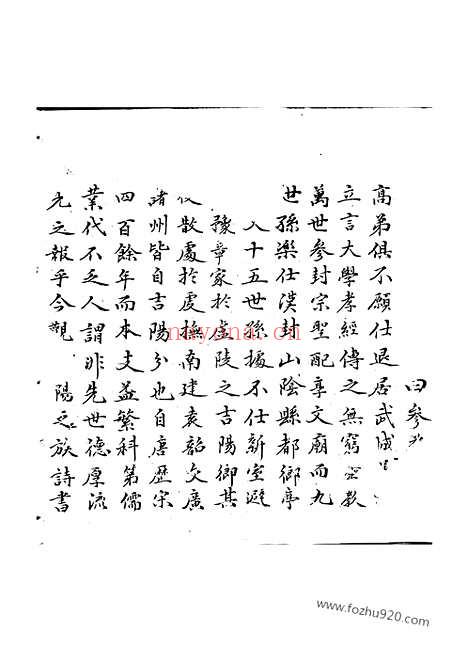 曰參
高弟俱不願仕退居武城
立言大學孝經傳之無窮立教
萬世參封宗聖配享文廟而九
世孫樂仕漢封山陰縣都鄉亭
入十五世孫據不仕新室避
豫章家於廬陵之吉陽鄉其
散處於虔撫南建袁韶交廣
諸州皆自吉陽分也自唐歷宋
四百餘年而本支益繁科第儒
業代不乏人謂非先世德厚流
光之報乎今觀 陽之族詩書
nayona.cn
www.fozhu920.com